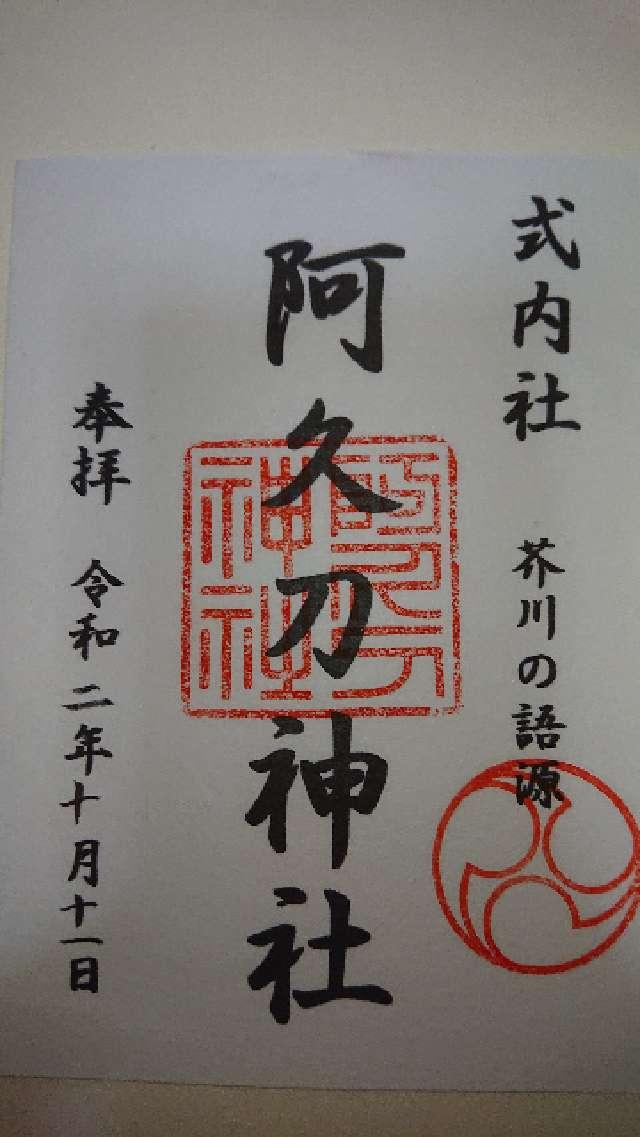 式内社 芥川の語源
阿久刀神社
奉拝 令和二年十月十一日
阿久刀神社